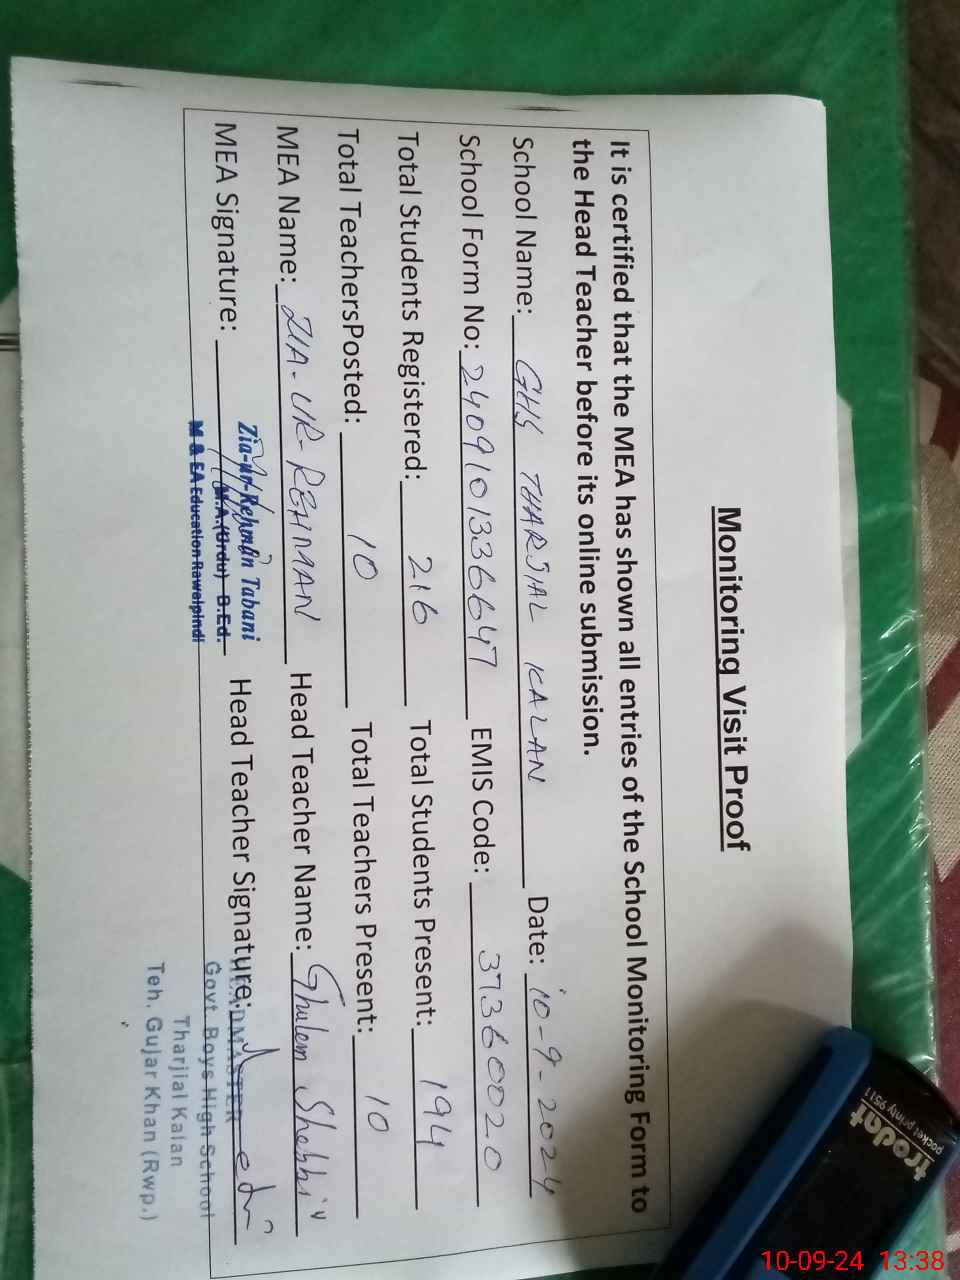 Monitoring Visit Proof
It is certified that the MEA has shown all entries of the School Monitoring Form to
the Head Teacher before its online submission.
School Name: GHS THARJIAL KALAN Date: 10-9-2024
School Form No: 2409101336647 EMIS Code: 37360020
Total Students Registered: 216 Total Students Present: 194
Total TeachersPosted: 10 Total Teachers Present: 10
MEA Name: ZIA-UR-REHMAN Head Teacher Name: Ghulam Shabbir
MEA Signature: Head Teacher Signature:
Zia-ur-Rehman Tabani
M.A.(Urdu) B.Ed.
M & EA Education Rawalpindi
HEADMASTER
Govt. Boys High School
Tharjial Kalan
Teh. Gujar Khan (Rwp.)
trodat
pocket printy 9511
10-09-24 13:38